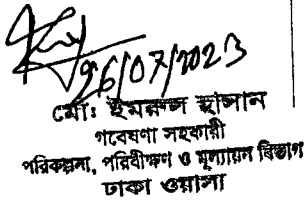 26/07/2023
মো: ইমরুল হাসান
গবেষণা সহকারী
পরিকল্পনা, পরিবীক্ষণ ও মূল্যায়ন বিভাগ
ঢাকা ওয়াসা